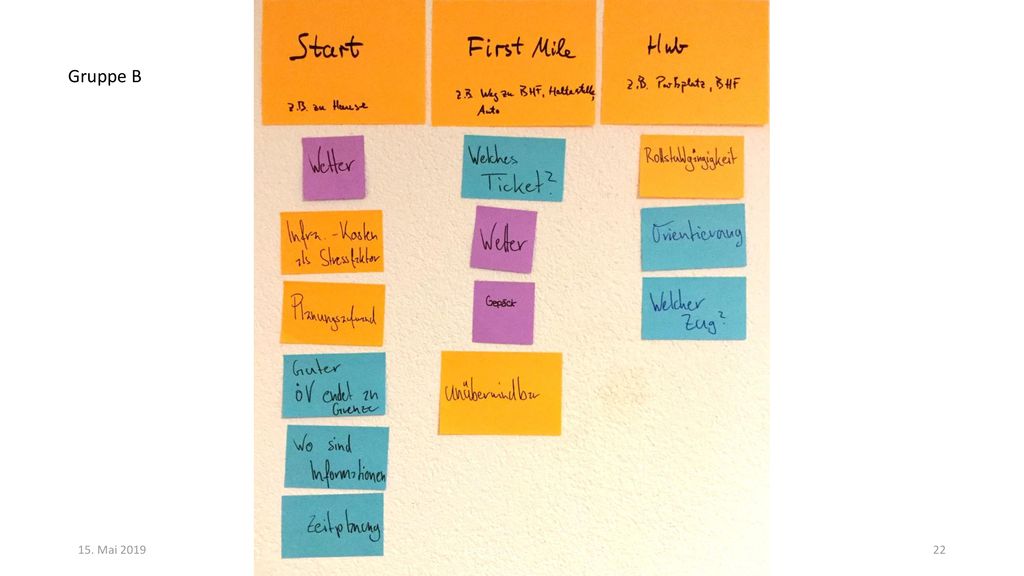 Gruppe B
Start
z.B. zu Hause
Wetter
Infra.-Kosten
als Stressfaktor
Planungsaufwand
Guter
ÖV endet an
Grenze
Wo sind
Informationen
Zeitplanung
First Mile
z.B. Weg zu BHF, Haltestelle,
Auto
Welches
Ticket?
Wetter
Gepäck
Unüberwindbar
Hub
z.B. Parkplatz, BHF
Rollstuhlgängigkeit
Orientierung
Welcher
Zug?
15. Mai 2019
22